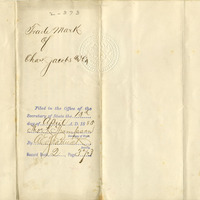 2-373
Trade Mark
of
Chas. Jacobs & Co
Filed in the Office of the
Secretary of State this 13th
day of April A.D. 18
By
Record Book 2 Page 373